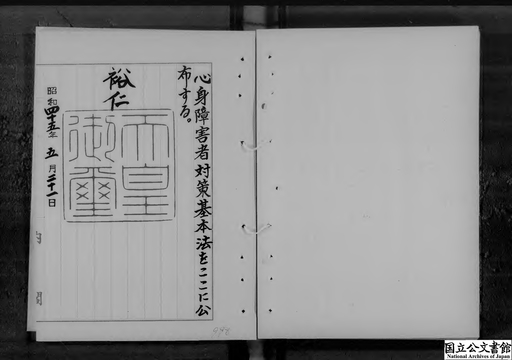 心身障害者対策基本法をここに公
布する。
裕仁
天皇
御璽
昭和四十五年 五月二十一日
国立公文書館
National Archives of Japan